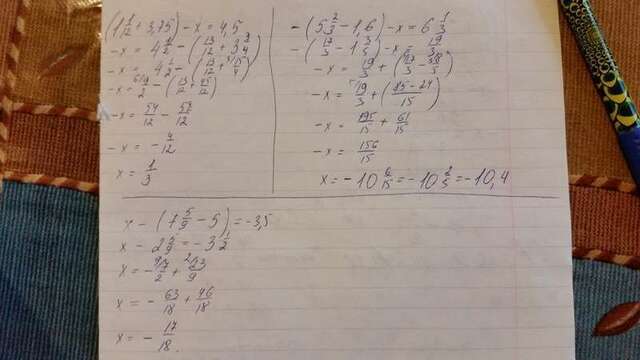 (1 1/12 + 3,75) - x = 4,5
-x = 4 1/2 - (13/12 + 3 3/4)
-x = 4 1/2 - (13/12 + 15/4)
-x = 9/2 - (13/12 + 45/12)
-x = 54/12 - 58/12
-x = - 4/12
x = 1/3
-(5 2/3 - 1,6) - x = 6 1/3
-(17/3 - 1 3/5) - x = 19/3
-x = 19/3 + (17/3 - 8/5)
-x = 19/3 + (85-24/15)
-x = 95/15 + 61/15
-x = 156/15
x = -10 6/15 = -10 2/5 = -10,4
x - (7 5/9 - 5) = -3,5
x - 2 5/9 = -3 1/2
x = - 7/2 + 23/9
x = - 63/18 + 46/18
x = - 17/18.